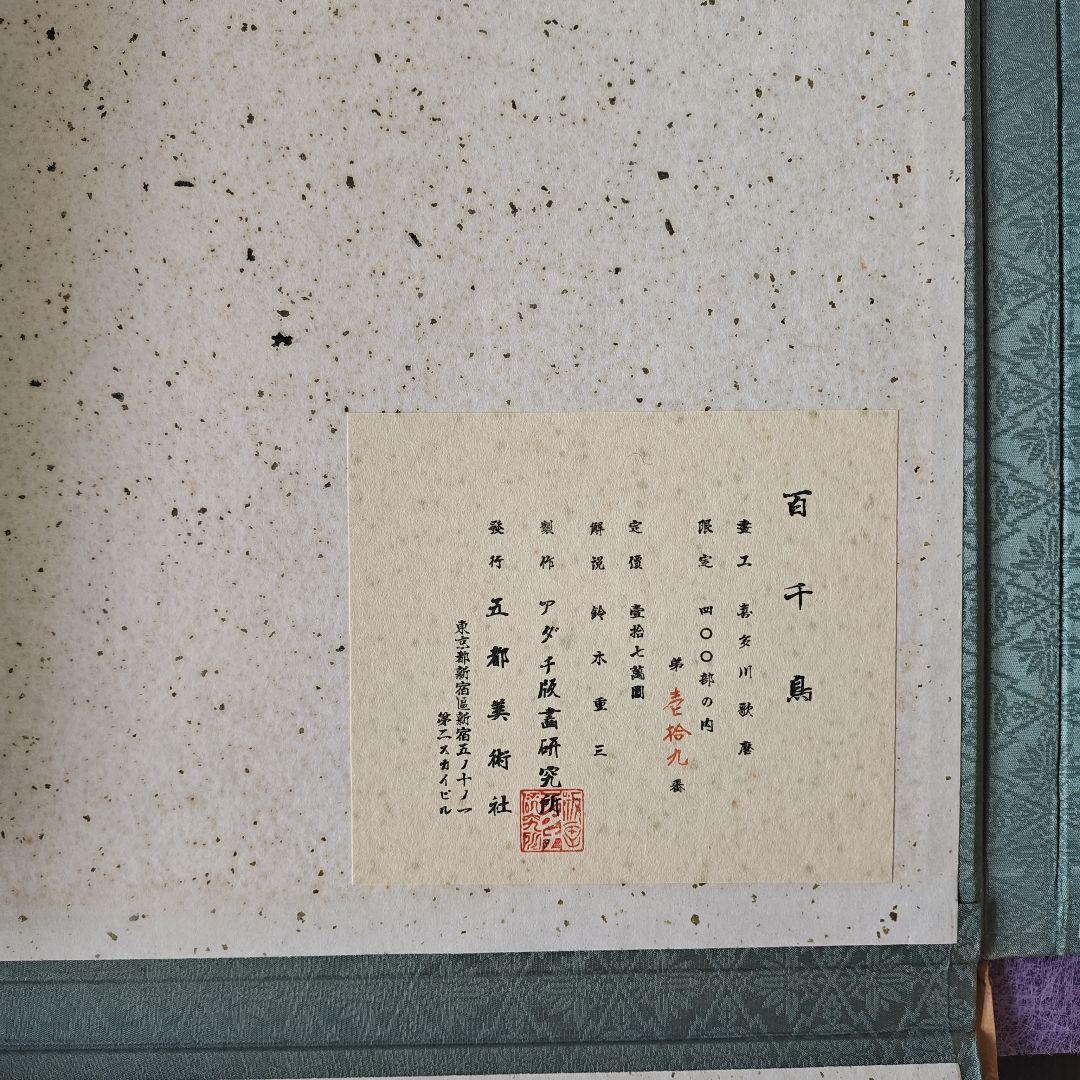 百千鳥
畫工 喜多川歌麿
限定 四〇〇部の内
第壱拾九番
定價 壹拾七萬圓
解説 鈴木重三
製作 アダチ版畫研究所
發行 五都美術社
東京都新宿區新宿五ノ十ノ一
第二スカイビル